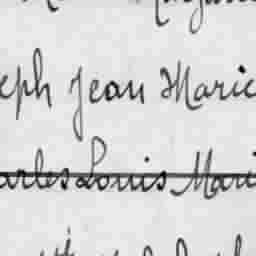 eph Jean Marie
arles Louis Mari